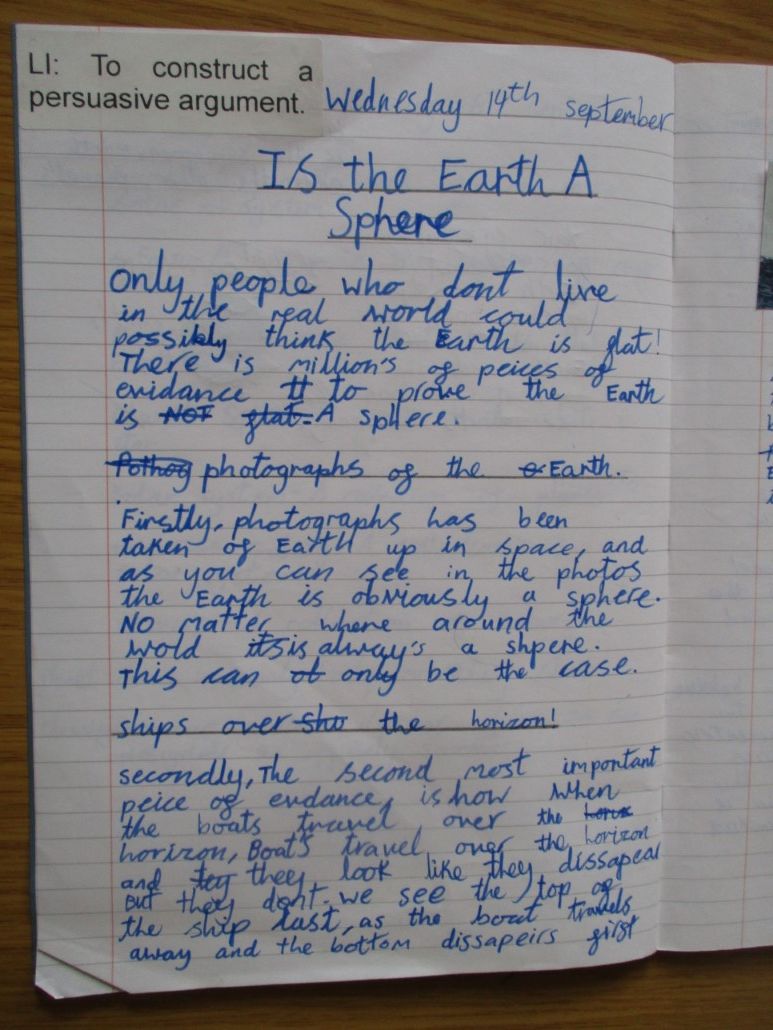 LI: To construct a
persuasive argument.
Wednesday 14th september
Is the Earth A
Sphere
Only people who dont live
in the real world could
possibly think the Earth is flat!
There is million's of peices of
evidance to to prove the Earth
is NOT flat. A sphere.
Pothog photographs of the Earth.
Firstly, photographs has been
taken of Earth up in space, and
as you can see in the photos
the Earth is obviously a sphere.
No matter where around the
world its is always a shpere.
This can of only be the case.
ships over sho the horizon!
secondly, The second most important
peice of evdance, is how when
the boats travel over the horus
horizon, Boats travel over the horizon
and tey they look like they dissapear
But they dont. we see the top of
the ship last, as the boat travels
away and the bottom dissapeirs first